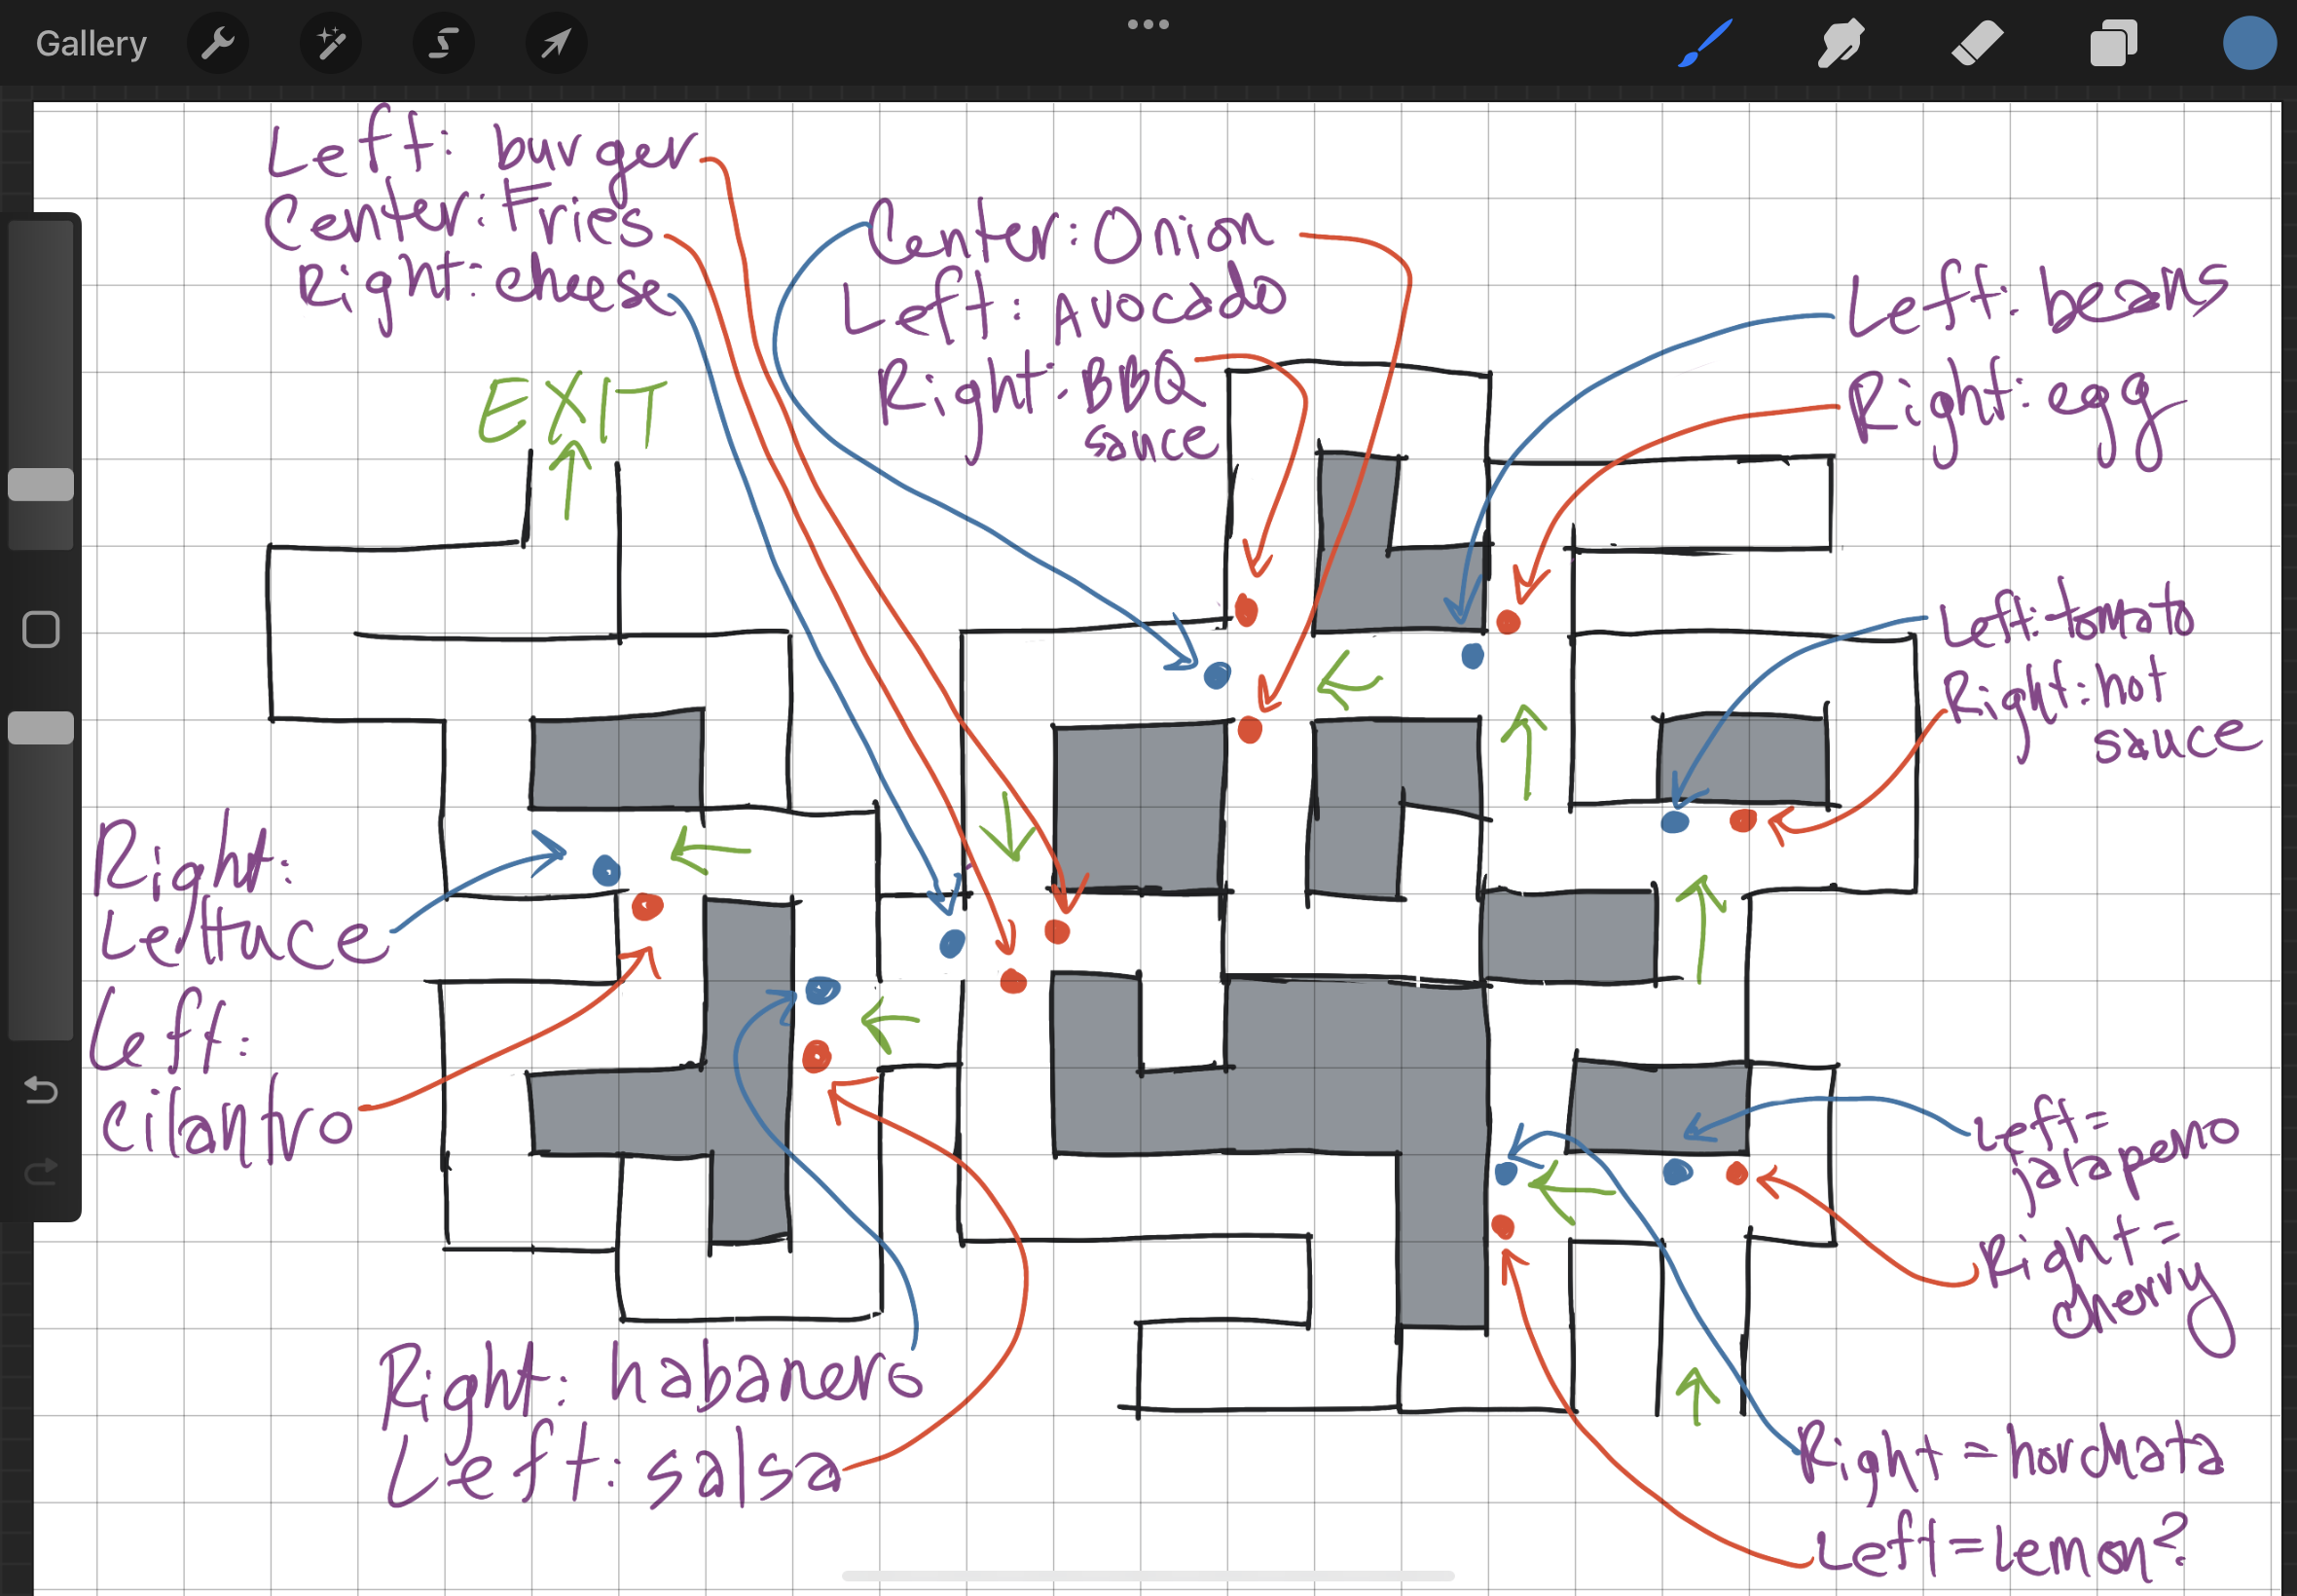 Gallery
Left: burger
Center: Fries
Right: cheese
Center: Onion
Left: Avocado
Right: BBQ
sauce
Left: beans
Right: egg
EXIT
Left: tomato
Right: hot
sauce
Right:
Lettuce
Left:
cilantro
Left =
jalapeno
Right =
cherry
Right: habanero
Left: salsa
Right = horchata
Left = Lemon?